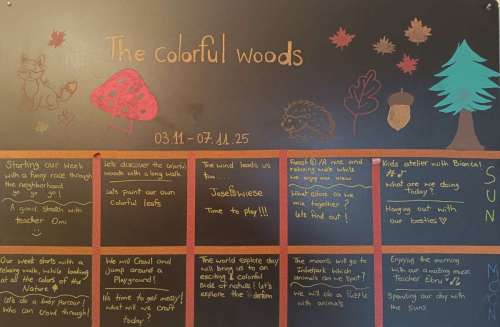 The Colorful woods
03.11 - 07.11.25
Starting our week
with a funny race through
the neighborhood
A good Stretch with
teacher Omi
Let's discover the colorful
woods with a long walk
Lets paint our own
Colorful leafs
The wind leads us
to...
Josef Wiese
Time to play!!!
A nice and
relaxing walk while
we enjoy our view
What colors do we
mix together?
Let's find out!
Kids atelier with Bianca!
What are we doing
Today?
Hanging out with
our besties
SUN
Our week starts with a
relaxing walk, while looking
at all the colors of the
Nature
Let's do a Body Parcour!
Who can crawl through!
We will Crawl and
jump around a
Playground!
It's time to get messy!
what will we craft
today?
The world explore day
will bring us to an
exciting & colorful
side of nature! Let's
explore the
The moons will go to
Indelpark Which
animals can we spot?
We will do a Puzzle
with animals
Enjoying the morning
with our amazing music
Teacher Ebru
Spending our day with
the Suns
MOON